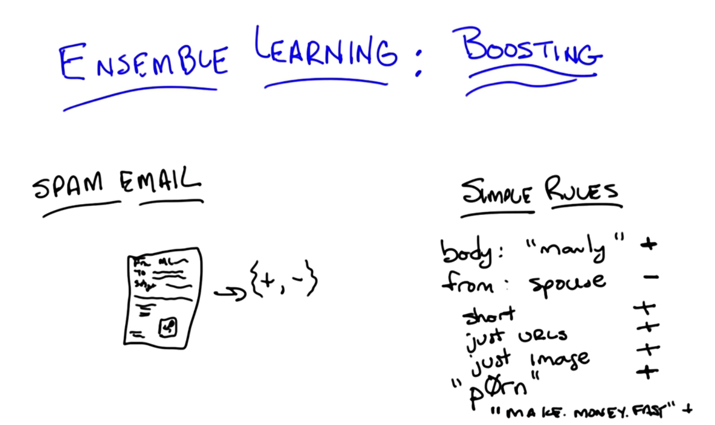 ENSEMBLE LEARNING: BOOSTING
SPAM EMAIL
SIMPLE RULES
body: "manly" +
from: spouse -
short +
just URLS +
just image +
"pØrn" +
"MAKE.MONEY.FAST" +
→ {+, -}
To